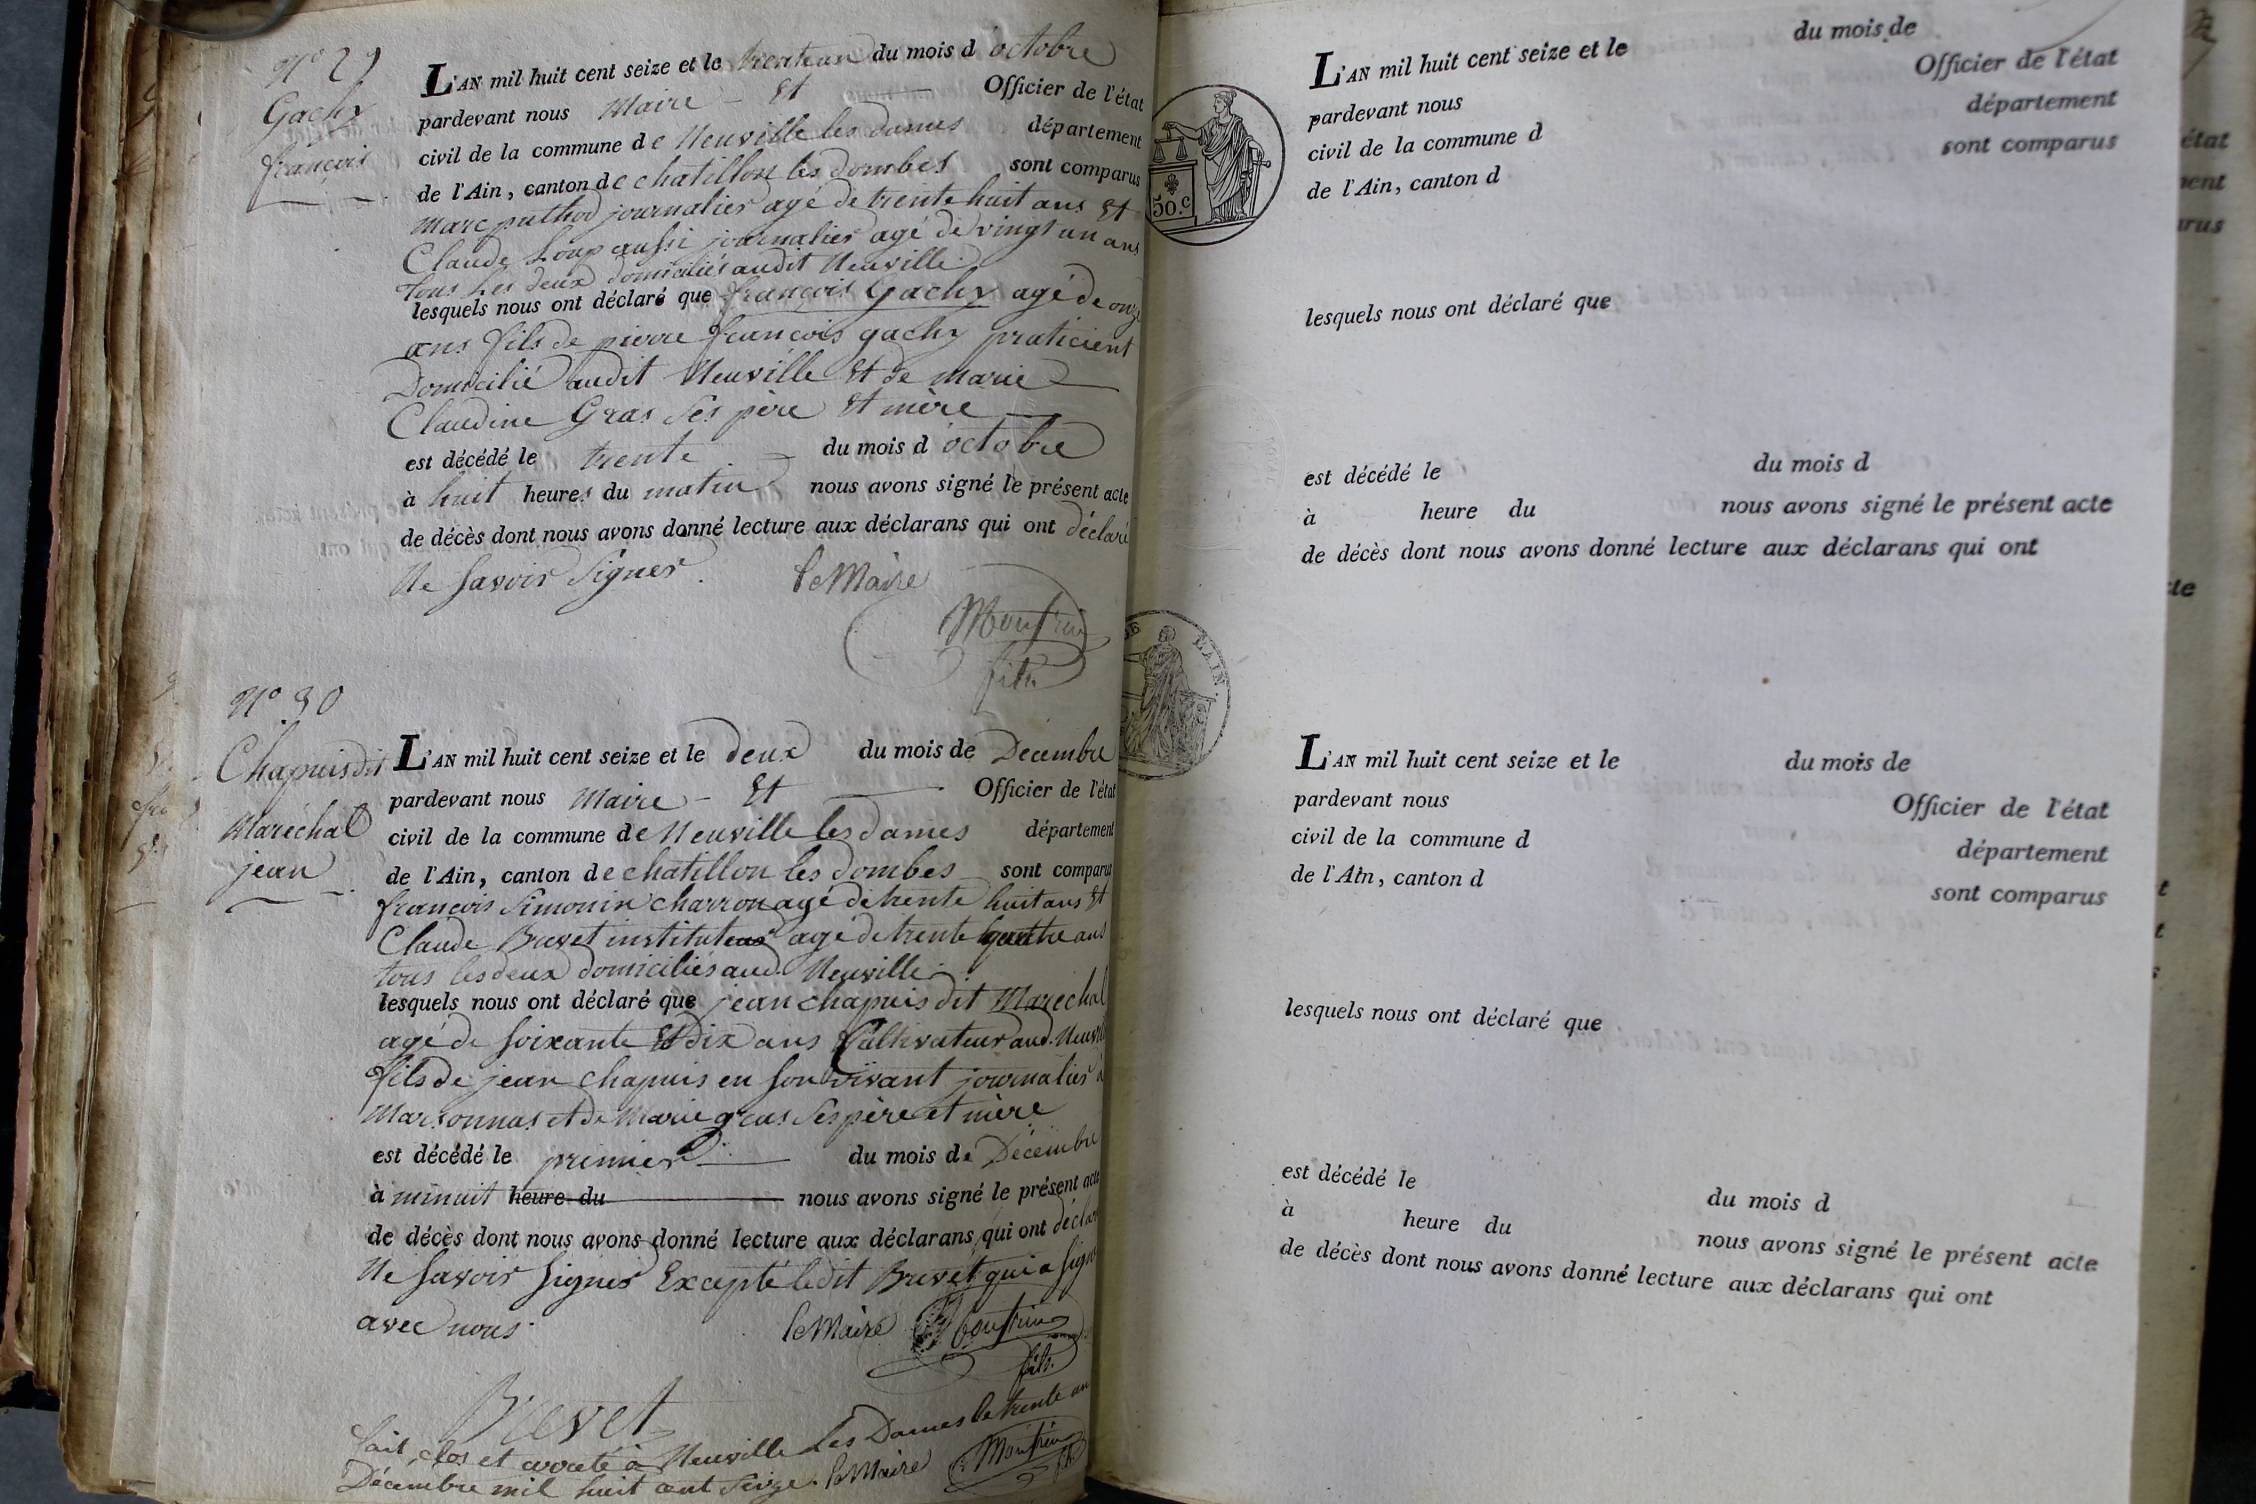 N° 29
Gachy
françois
L'AN mil huit cent seize et le trente un du mois d octobre
pardevant nous Maire - Et Officier de l'état
civil de la commune de Neuville les dames département
de l'Ain, canton de chatillon les dombes sont comparus
Marc puthod journalier agé de trente huit ans Et
Claude Loup aussi journalier agé de vingt un ans
tous les deux domiciliés audit Neuville.
lesquels nous ont déclaré que françois Gachy agé de onze
ans fils de pierre francois gachy praticient
Domicilié audit Neuville Et de marie
Claudine Gras Ses père Et mère
est décédé le trente du mois d octobre
à huit heures du matin nous avons signé le présent acte
de décès dont nous avons donné lecture aux déclarans qui ont déclaré
Ne Savoir Signer. le Maire
Monfrin
fils
N° 30
Chapuis dit
Maréchal
jean
L'AN mil huit cent seize et le deux du mois de Décembre
pardevant nous Maire - Et Officier de l'état
civil de la commune de Neuville les dames département
de l'Ain, canton de chatillon les dombes sont comparus
françois Simonin charron agé de trente huit ans Et
Claude Brevet instituteur agé de trente quatre ans
tous les deux domiciliés aud. Neuville.
lesquels nous ont déclaré que jean chapuis dit Maréchal
agé de Soixante Et Dix ans Cultivateur aud. Neuville
fils de jean chapuis en Son vivant journalier à
Marsonnas et de Marie gras Ses père et mère
est décédé le premier du mois de Décembre
à minuit heure du nous avons signé le présent acte
de décès dont nous avons donné lecture aux déclarans qui ont déclaré
Ne Savoir Signer Excepté ledit Brevet qui a signé
avec nous. le Maire Monfrin
fils
Brevet
fait, clos et arrêté à Neuville les Dames le trente un
Décembre mil huit cent Seize. le Maire Monfrin
fils
L'AN mil huit cent seize et le du mois de
pardevant nous Officier de l'état
civil de la commune d département
de l'Ain, canton d sont comparus
50.c
lesquels nous ont déclaré que
est décédé le du mois d
à heure du nous avons signé le présent acte
de décès dont nous avons donné lecture aux déclarans qui ont
L'AN mil huit cent seize et le du mois de
pardevant nous Officier de l'état
civil de la commune d département
de l'Ain, canton d sont comparus
lesquels nous ont déclaré que
est décédé le du mois d
à heure du nous avons signé le présent acte
de décès dont nous avons donné lecture aux déclarans qui ont